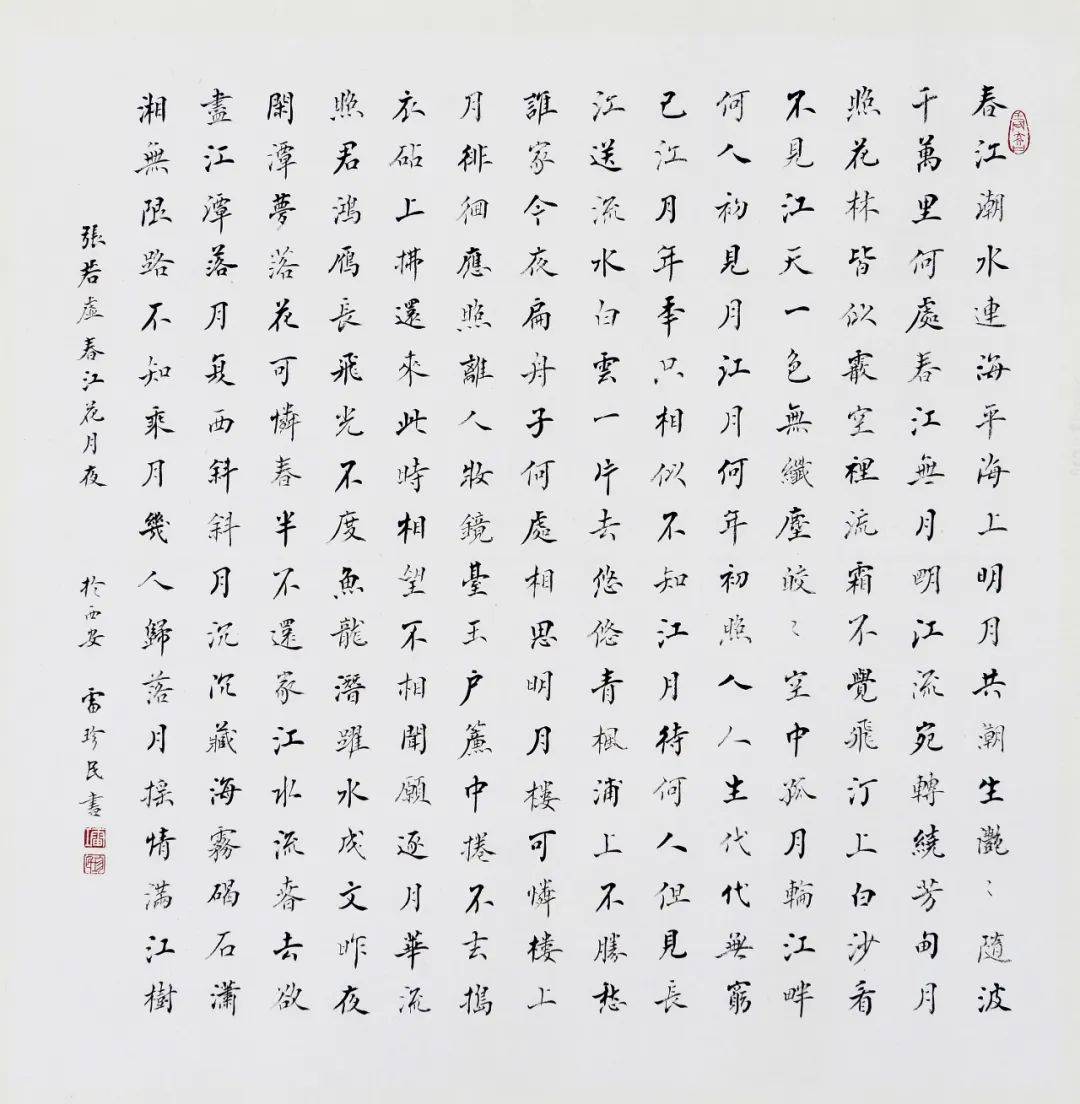 春江潮水連海平海上明月共潮生灩〻隨波
千萬里何處春江無月明江流宛轉繞芳甸月
照花林皆似霰空裡流霜不覺飛汀上白沙看
不見江天一色無纖塵皎〻空中孤月輪江畔
何人初見月江月何年初照人人生代代無窮
已江月年秊只相似不知江月待何人但見長
江送流水白雲一片去悠悠青楓浦上不勝愁
誰家今夜扁舟子何處相思明月楼可憐楼上
月徘徊應照離人妝鏡臺玉户簾中捲不去搗
衣砧上拂還來此時相望不相聞願逐月華流
照君鴻雁長飛光不度魚龍潛躍水成文昨夜
閑潭夢落花可憐春半不還家江水流春去欲
盡江潭落月复西斜斜月沉沉藏海霧碣石瀟
湘無限路不知乘月幾人歸落月搖情滿江樹
張若虛春江花月夜 於西安 雷珍民書